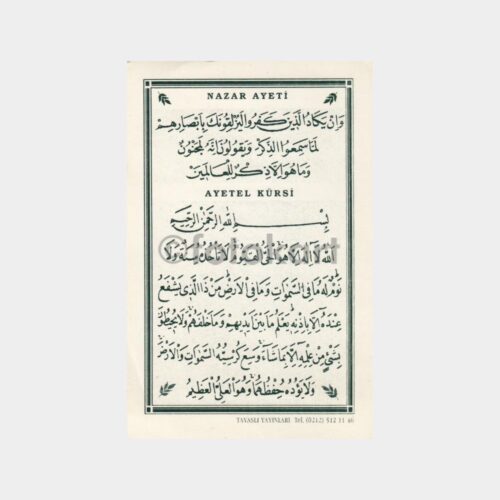 NAZAR AYETİ
وَاِنْ يَكَادُ الَّذٖينَ كَفَرُوا لَيُزْلِقُونَكَ بِاَبْصَارِهِمْ
لَمَّا سَمِعُوا الذِّكْرَ وَيَقُولُونَ اِنَّهُ لَمَجْنُونٌ
وَمَا هُوَ اِلَّا ذِكْرٌ لِلْعَالَمٖينَ
AYETEL KÜRSİ
بِسْمِ اللهِ الرَّحْمٰنِ الرَّحٖيمِ
اَللهُ لَا اِلٰهَ اِلَّا هُوَ الْحَيُّ الْقَيُّومُ لَا تَأْخُذُهُ سِنَةٌ وَلَا
نَوْمٌ لَهُ مَا فِي السَّمٰوَاتِ وَمَا فِي الْاَرْضِ مَنْ ذَا الَّذٖي يَشْفَعُ
عِنْدَهُ اِلَّا بِاِذْنِهٖ يَعْلَمُ مَا بَيْنَ اَيْدٖيهِمْ وَمَا خَلْفَهُمْ وَلَا يُحٖيطُونَ
بِشَيْءٍ مِنْ عِلْمِهٖ اِلَّا بِمَا شَاءَ وَسِعَ كُرْسِيُّهُ السَّمٰوَاتِ وَالْاَرْضَ
وَلَا يَؤُدُهُ حِفْظُهُمَا وَهُوَ الْعَلِيُّ الْعَظٖيمُ
TAVASLI YAYINLARI Tel. (0212) 512 11 46
©fotokart